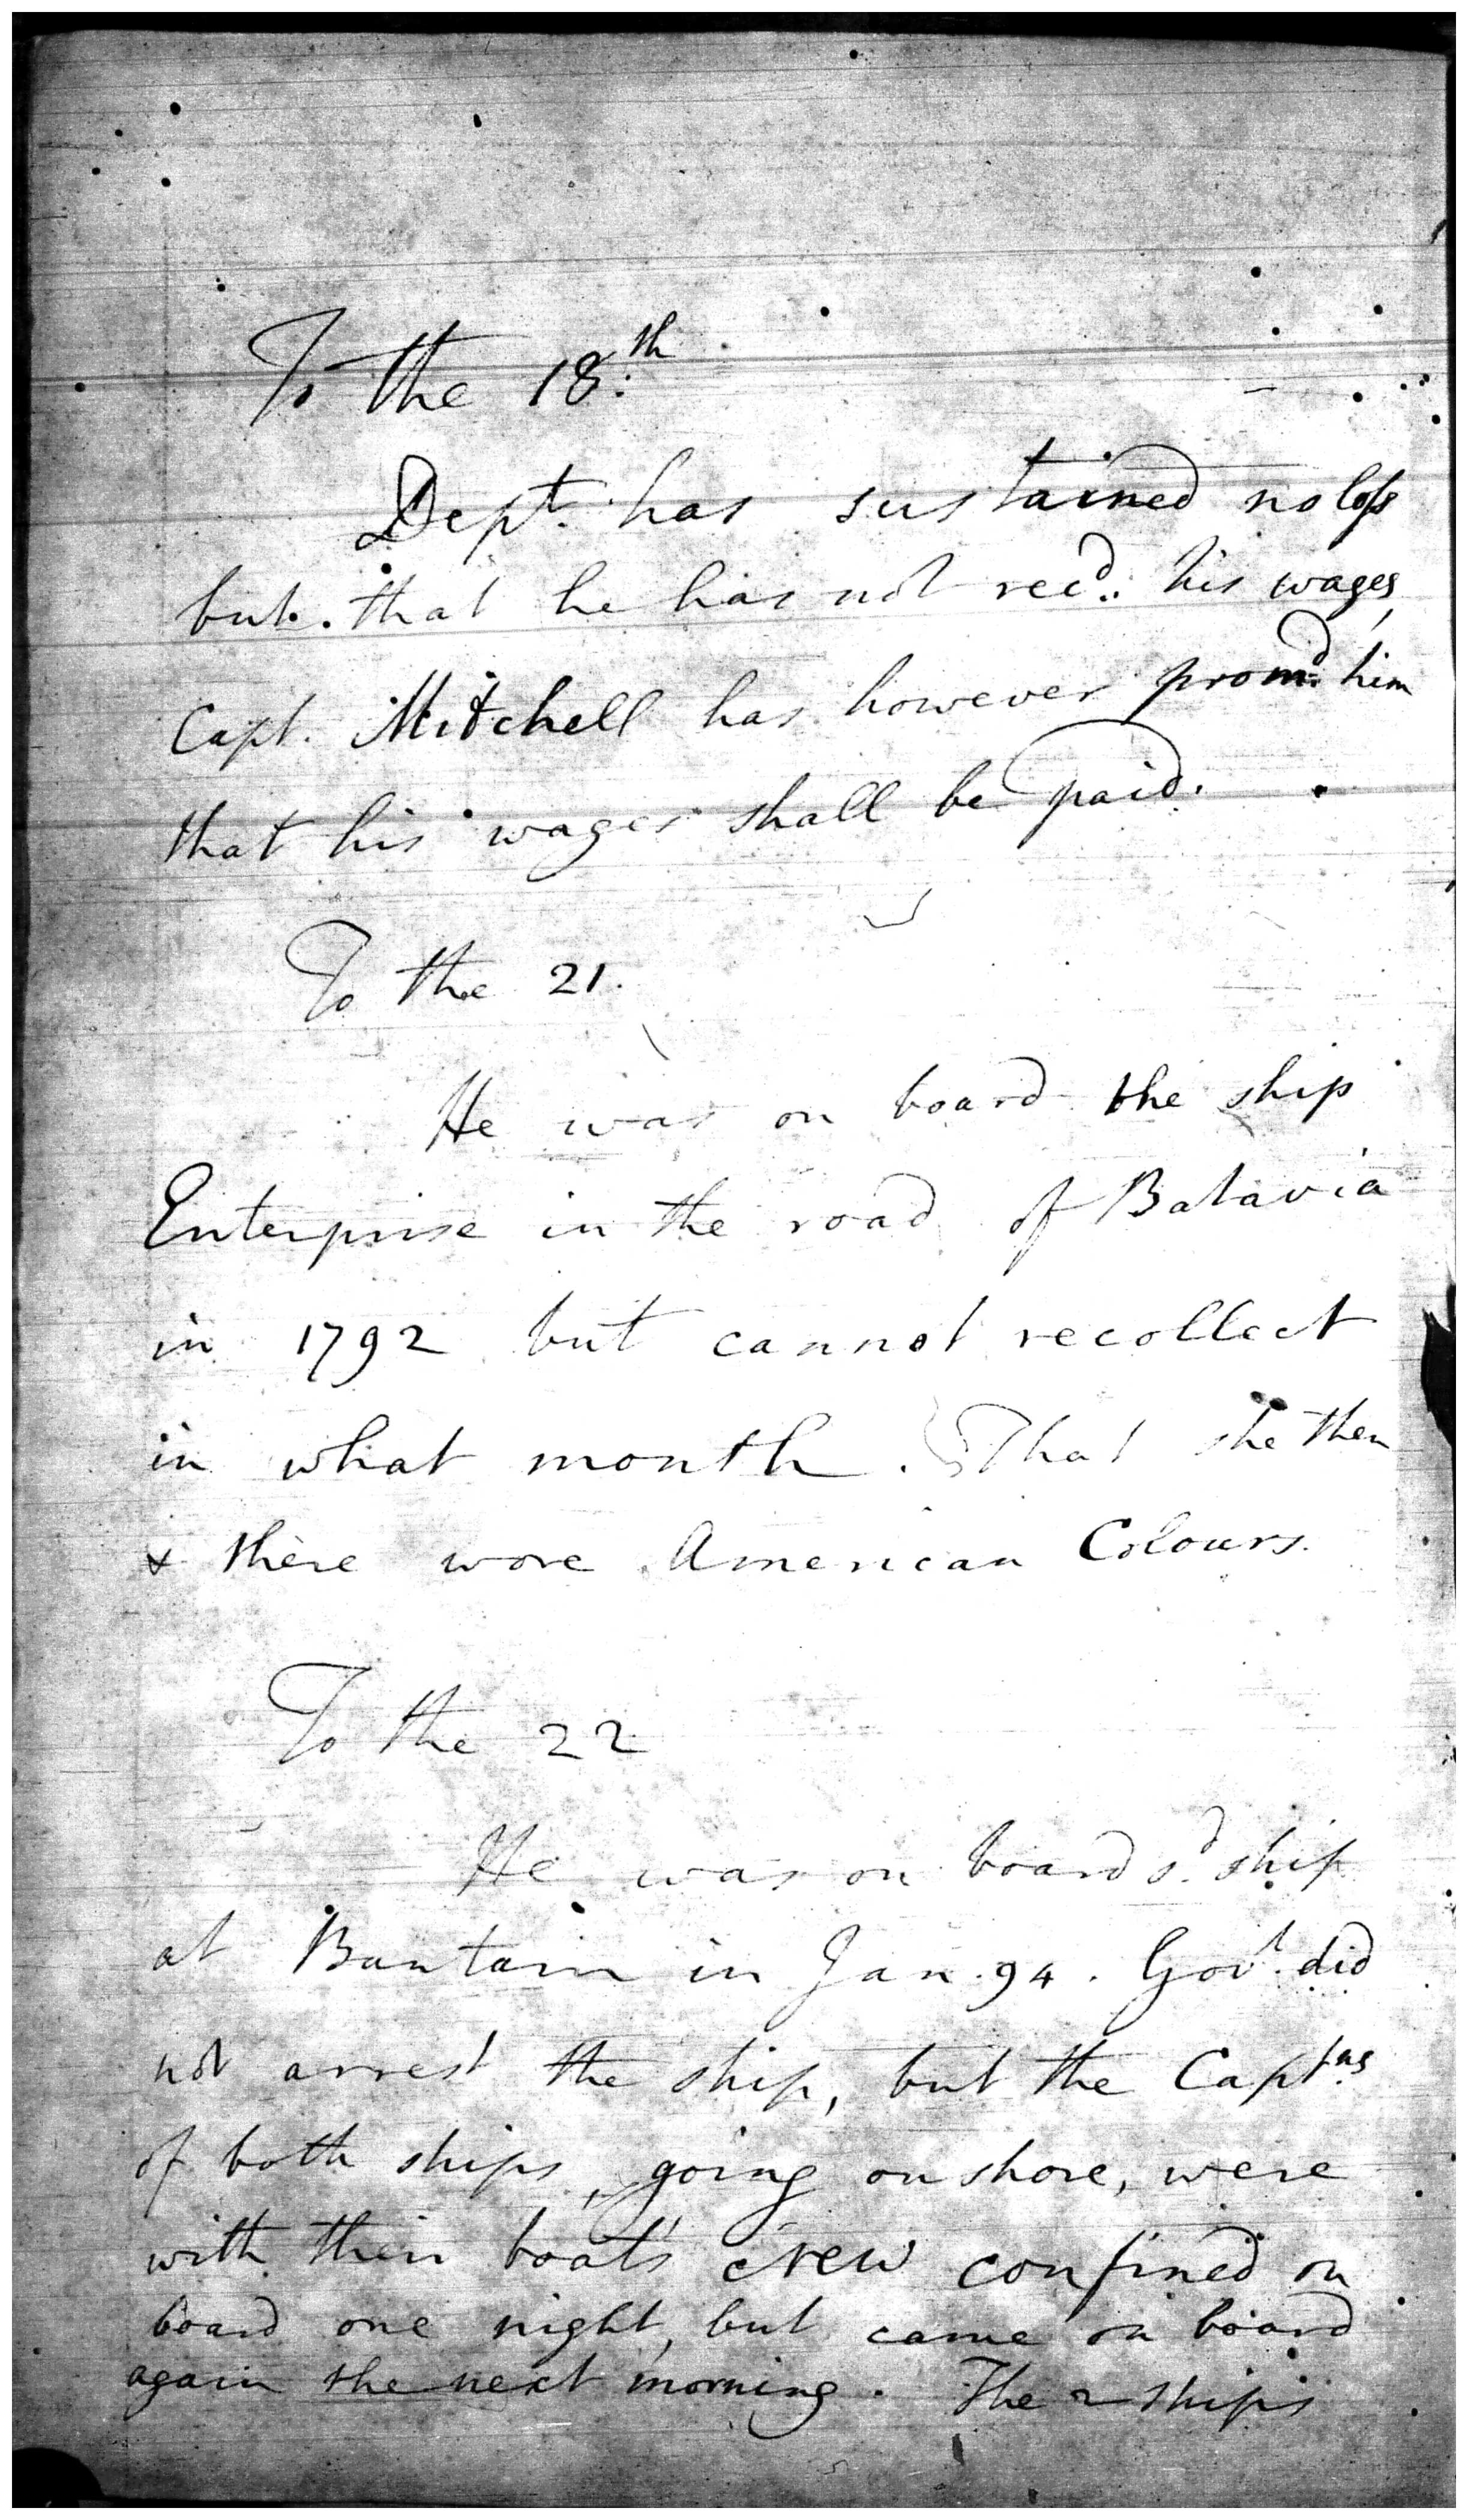 To the 18.th
Dept. has sustained no loss
but. that he has not recd. his wages,
Capt. Mitchell has however promd. him
that his wages shall be paid.
To the 21.
He was on board the ship
Enterprise in the road of Batavia
in 1792 but cannot recollect
in what month. That she then
& there wore American Colours.
To the 22
He was on board sd. ship
at Bantam in Jan. 94. Govt. did
not arrest the ship, but the Captns
of both ships, going on shore, were
with their boat's crew confined on
board one night, but came on board
again the next morning. The 2 ships